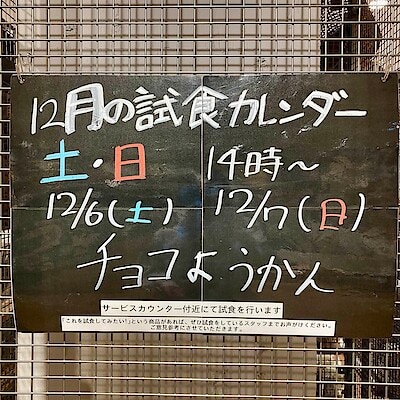 12月の試食カレンダー
土・日 14時～
12/6(土) 12/7(日)
チョコようかん
サービスカウンター付近にて試食を行います
「これを試食してみたい！」という商品があれば、ぜひ試食をしているスタッフまでお声がけください。
ご意見参考にさせていただきます。